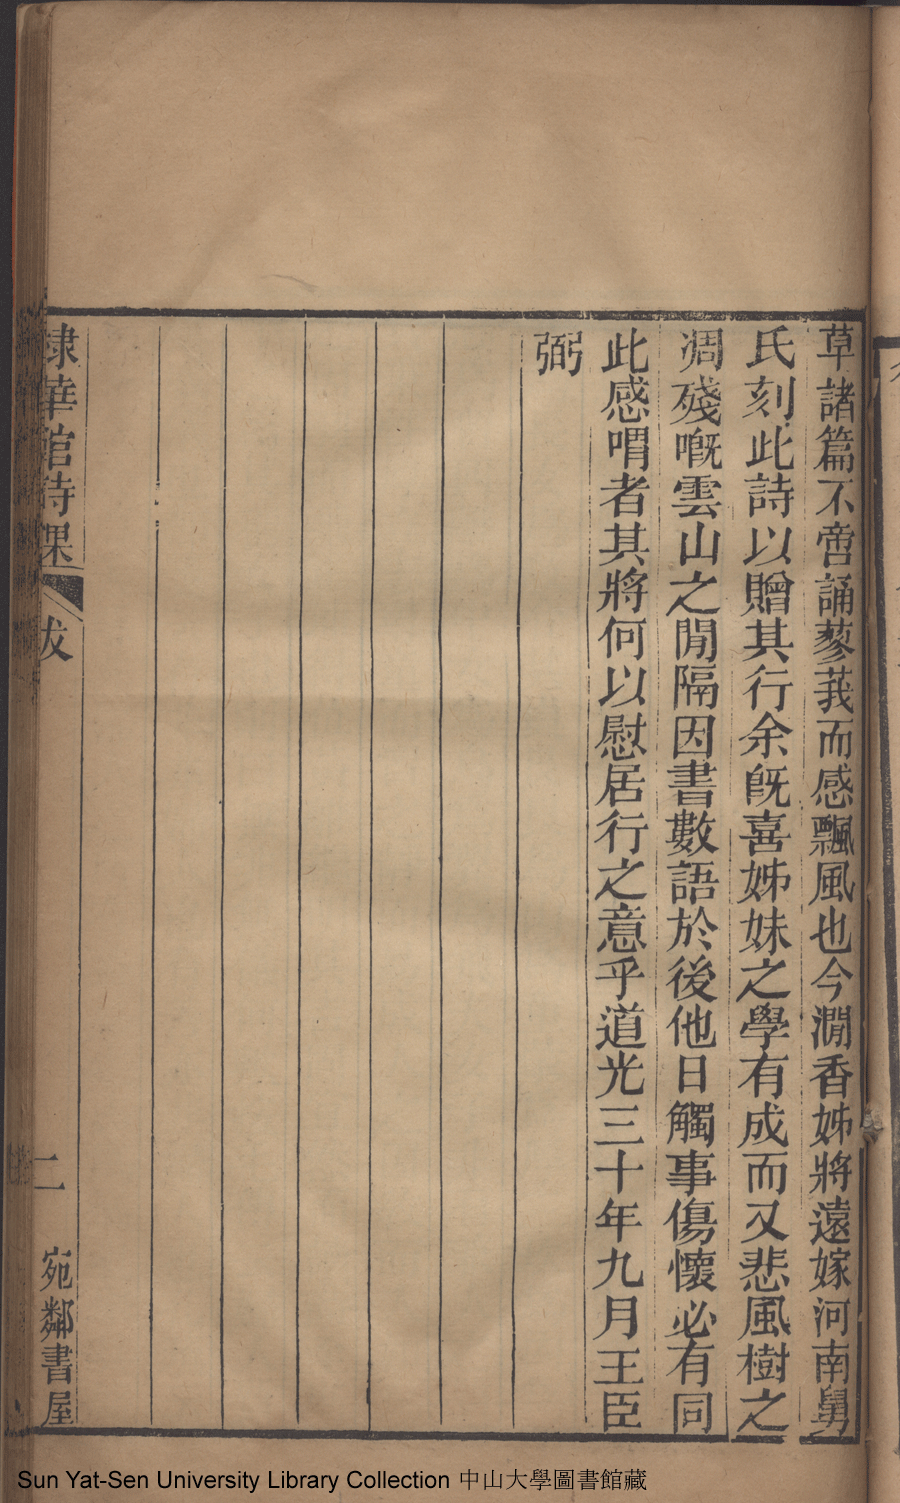 草諸篇不啻誦蓼莪而感飄風也今澗香姊將遠嫁河南舅
氏刻此詩以贈其行余旣喜姊妹之學有成而又悲風樹之
凋殘嘅雲山之閒隔因書數語於後他日觸事傷懷必有同
此感喟者其將何以慰居行之意乎道光三十年九月王臣
弼
棣華館詩課 跋 二 宛鄰書屋
Sun Yat-Sen University Library Collection 中山大學圖書館藏